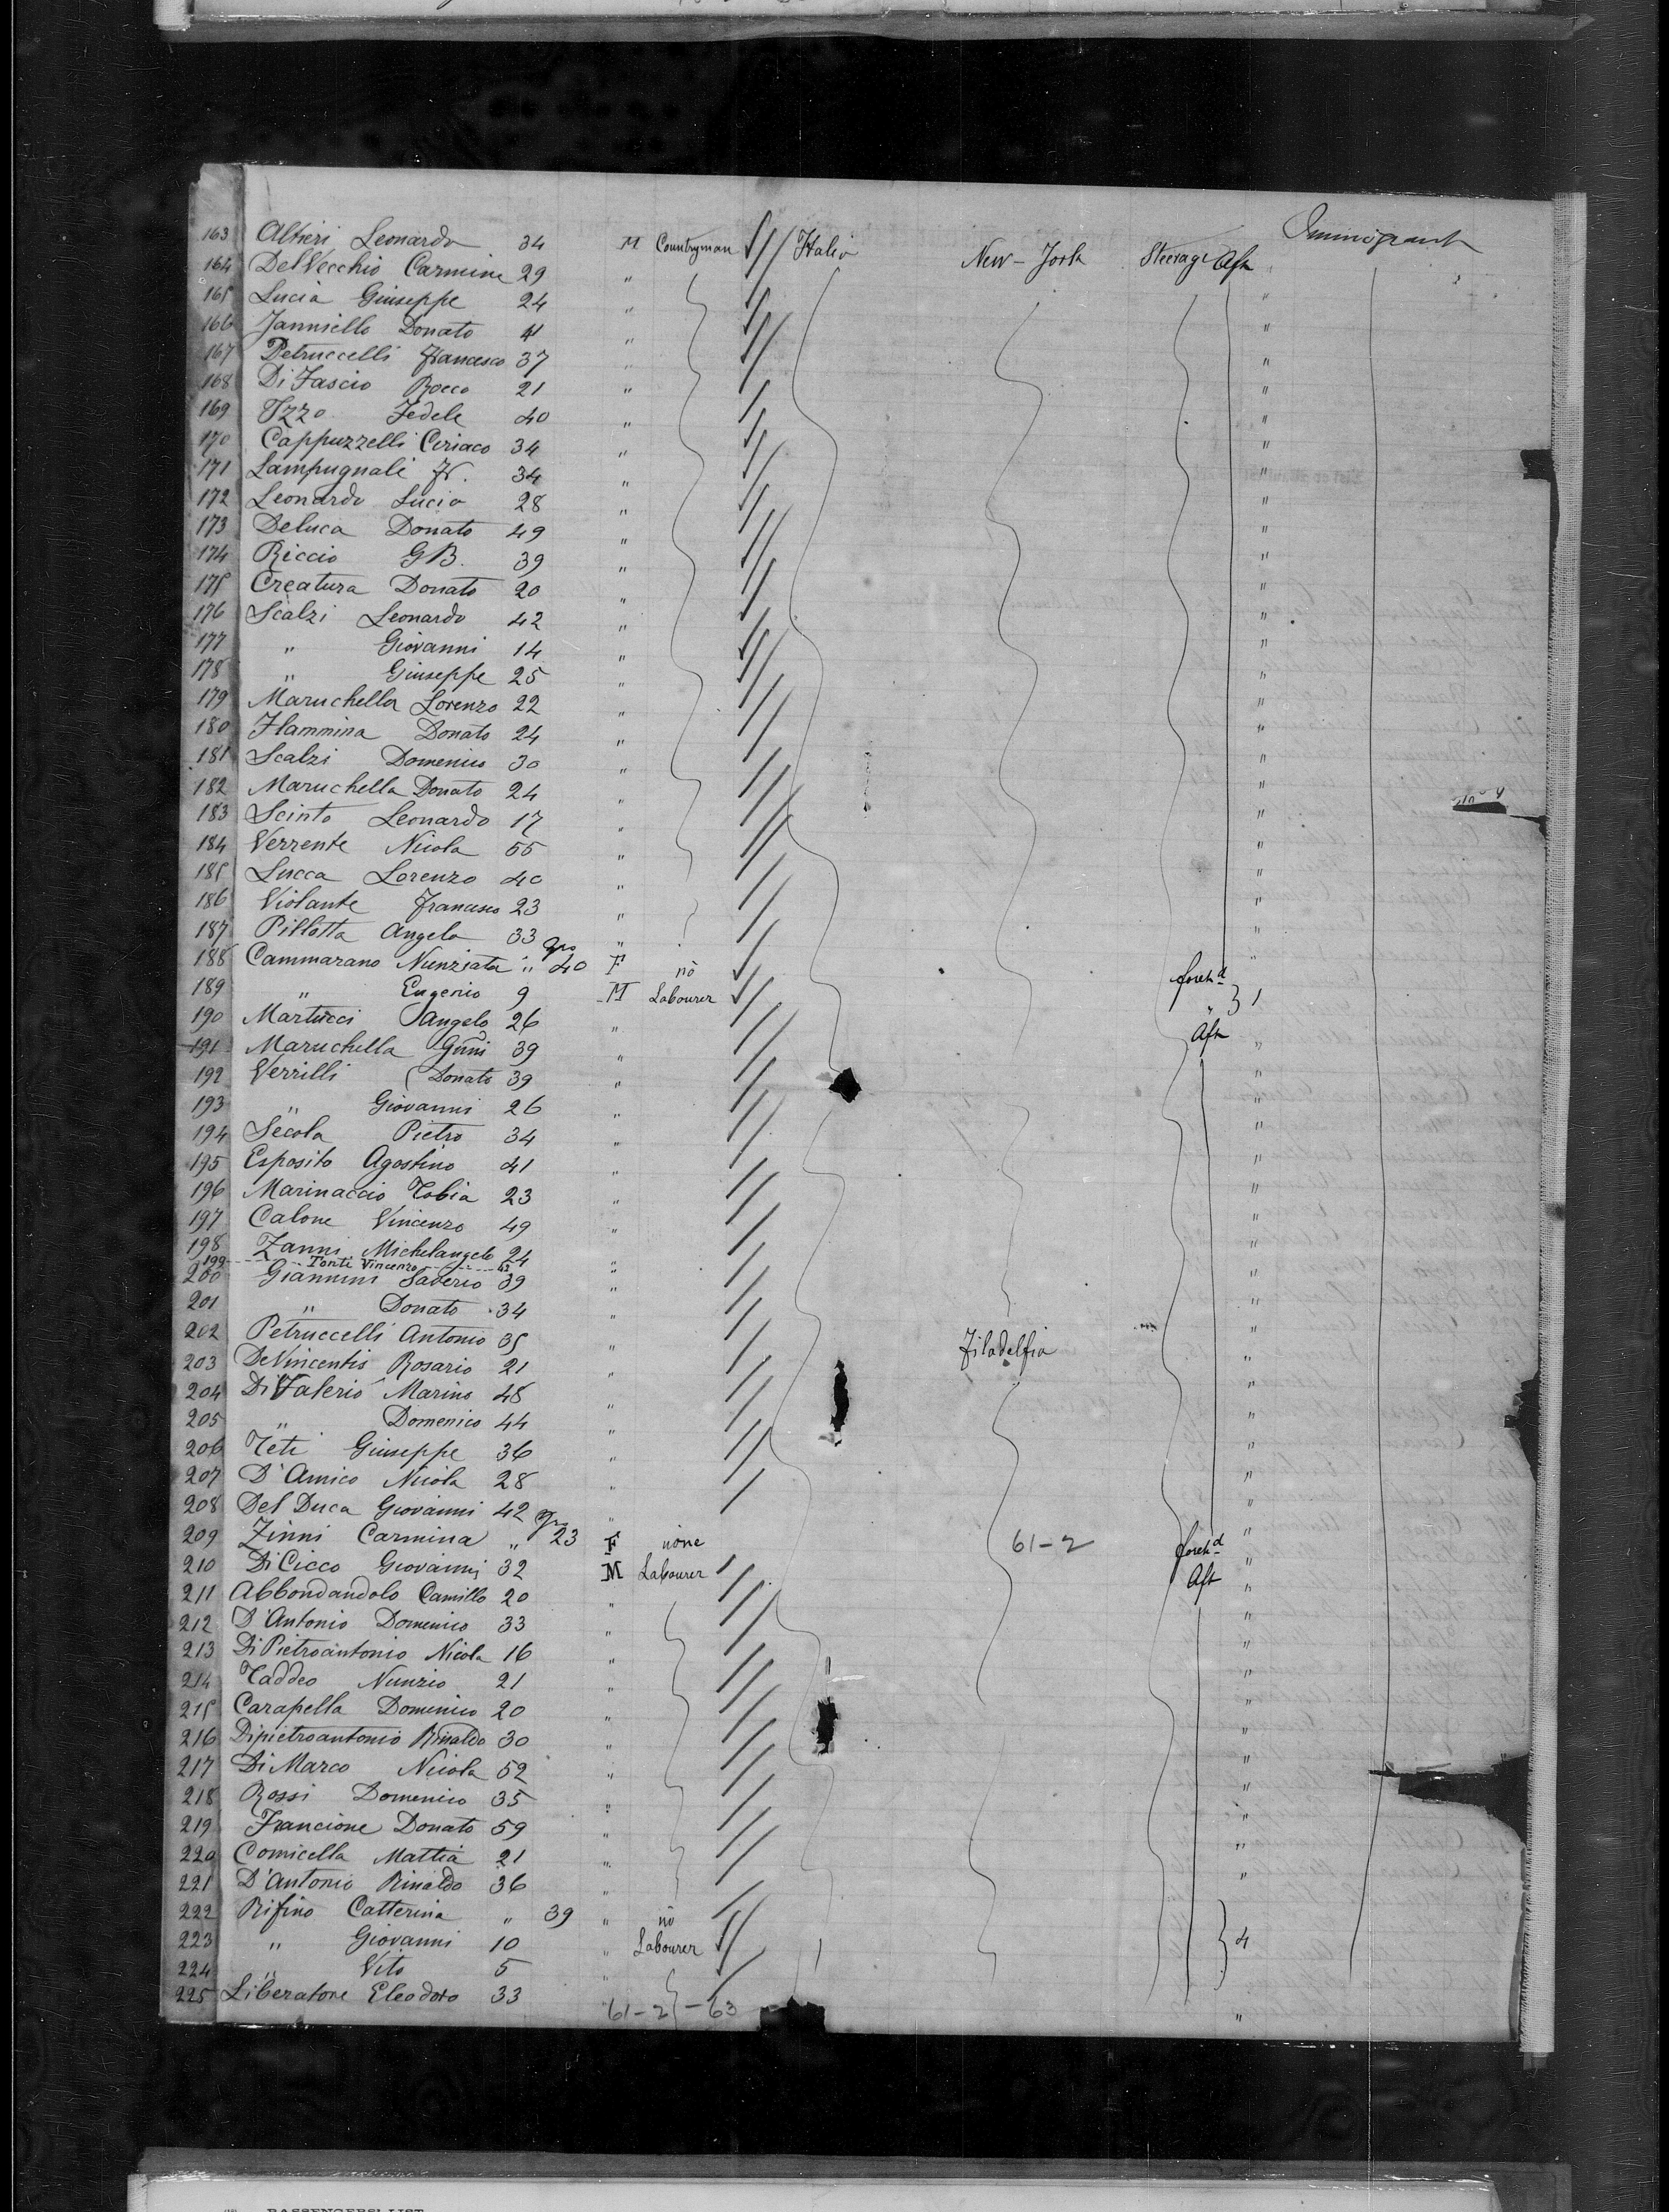 Immigrant
163 Altieri Leonardo 34 M Countryman Italia New-York Steerage Aft
164 DelVecchio Carmine 29 " "
165 Lucia Giuseppe 24 " "
166 Janniello Donato 41 " "
167 Petruccelli Francesco 37 " "
168 DiFascio Rocco 21 " "
169 Izzo Fedele 40 " "
170 Cappuzzelli Ciriaco 34 " "
171 Lampugnali Fr. 34 " "
172 Leonardo Lucia 28 " "
173 Deluca Donato 49 " "
174 Riccio GB. 39 " "
175 Creatura Donato 20 " "
176 Scalzi Leonardo 42 " "
177 " Giovanni 14 " "
178 " Giuseppe 25 " "
179 Maruchella Lorenzo 22 " "
180 Flammina Donato 24 " "
181 Scalzi Domenico 30 " "
182 Maruchella Donato 24 " "
183 Scinto Leonardo 17 " "
184 Verrente Nicola 55 " "
185 Lucca Lorenzo 40 " "
186 Violante Francesco 23 " "
187 Pillotta Angelo 33 " "
188 Cammarano Nunziata " 40 F no foreh.d "
189 " Eugenio 9 M Labourer " } 1
190 Martucci Angelo 26 " Aft "
191 Maruchella Gnni 39 " "
192 Verrilli Donato 39 " "
193 " Giovanni 26 " "
194 Secola Pietro 34 " "
195 Esposito Agostino 41 " "
196 Marinaccio Tobia 23 " "
197 Calone Vincenzo 49 " "
198 Zanni Michelangelo 24 " "
199 Tonti Vincenzo "
200 Giannini Saverio 39 " "
201 " Donato 34 " "
202 Petruccelli Antonio 35 " Filadelfia "
203 DeVincentis Rosario 21 " "
204 DiValerio Marino 48 " "
205 " Domenico 44 " "
206 Teti Giuseppe 36 " "
207 D'Amico Nicola 28 " "
208 Del Duca Giovanni 42 " "
209 Zinni Carmina " 23 F none 61-2 foreh.d "
210 DiCicco Giovanni 32 M Labourer Aft "
211 Abbondandolo Camillo 20 " "
212 D'Antonio Domenico 33 " "
213 DiPietroantonio Nicola 16 " "
214 Taddeo Nunzio 21 " "
215 Carapella Domenico 20 " "
216 Dipietroantonio Rinaldo 30 " "
217 DiMarco Nicola 52 " "
218 Rossi Domenico 35 " "
219 Francione Donato 59 " "
220 Comicella Mattia 21 " "
221 D'Antonio Rinaldo 36 "
222 Rifino Catterina " 39 " no
223 " Giovanni 10 " Labourer } 4
224 " Vito 5 "
225 Liberatore Eleodoro 33 "
61-2 - 63
PASSENGERS' LIST